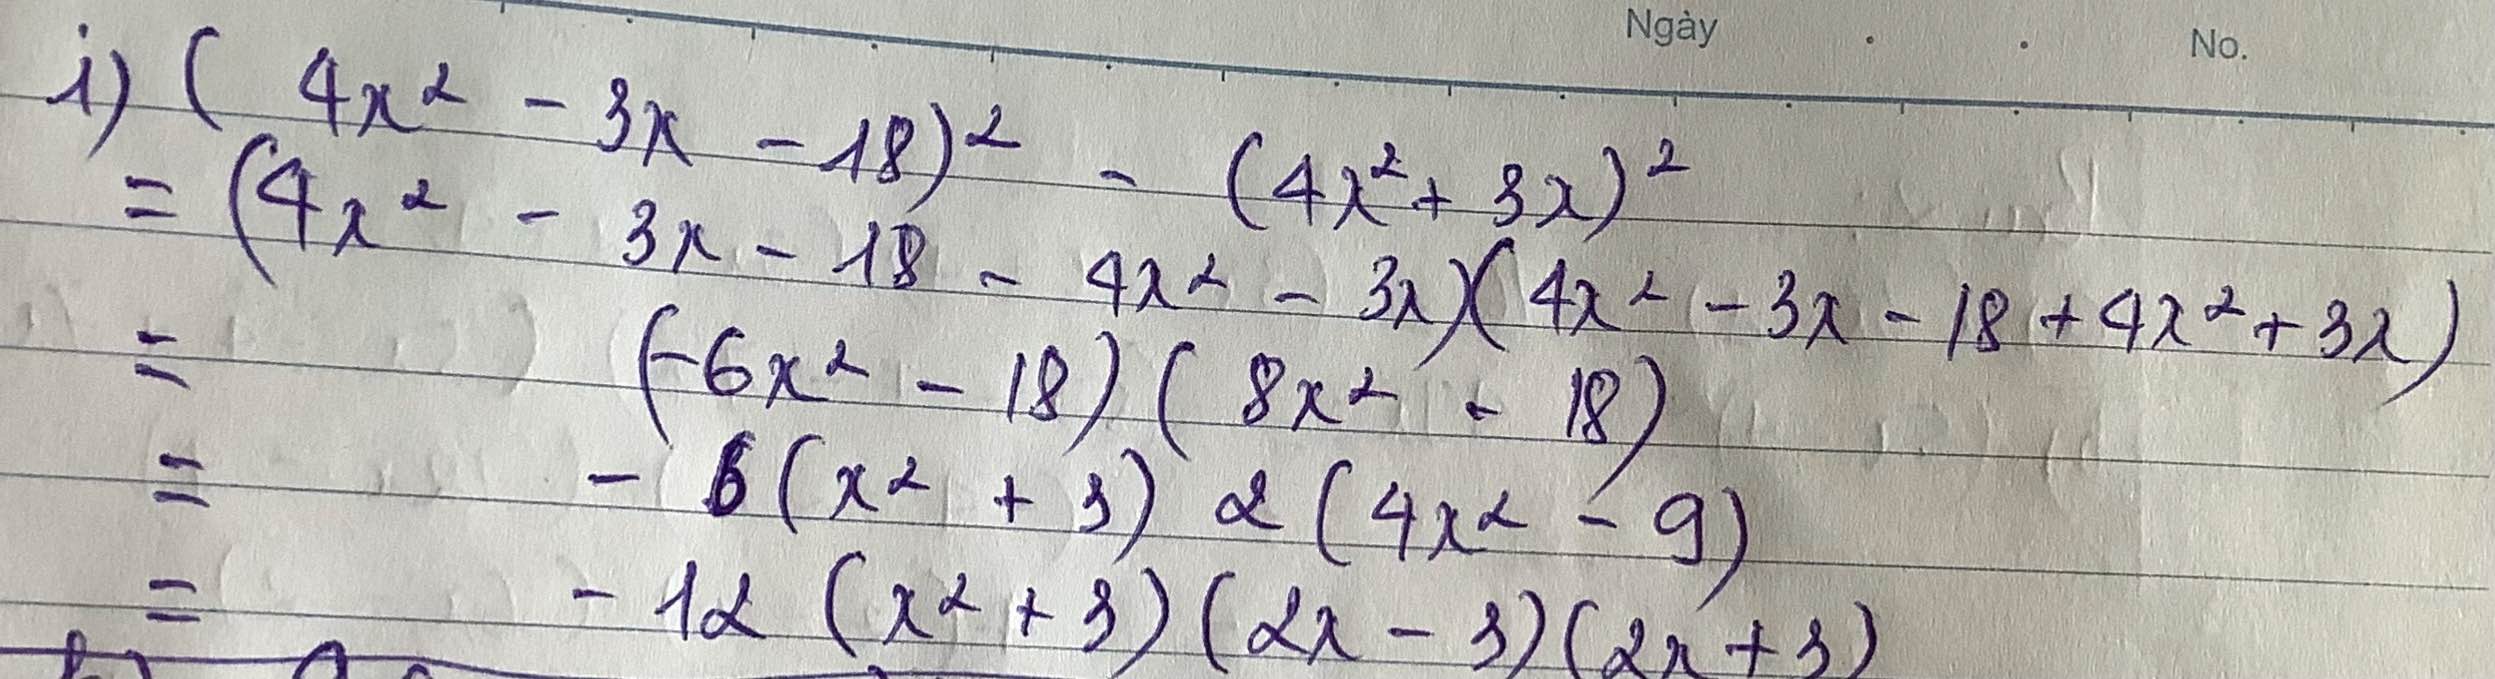 Ngày . . No.
i) ( 4x² - 3x - 18)² - (4x² + 3x)²
= (4x² - 3x - 18 - 4x² - 3x)(4x² - 3x - 18 + 4x² + 3x)
= (-6x² - 18) ( 8x² - 18)
= - 6 (x² + 3) 2 (4x² - 9)
= - 12 (x² + 3) (2x - 3) (2x + 3)